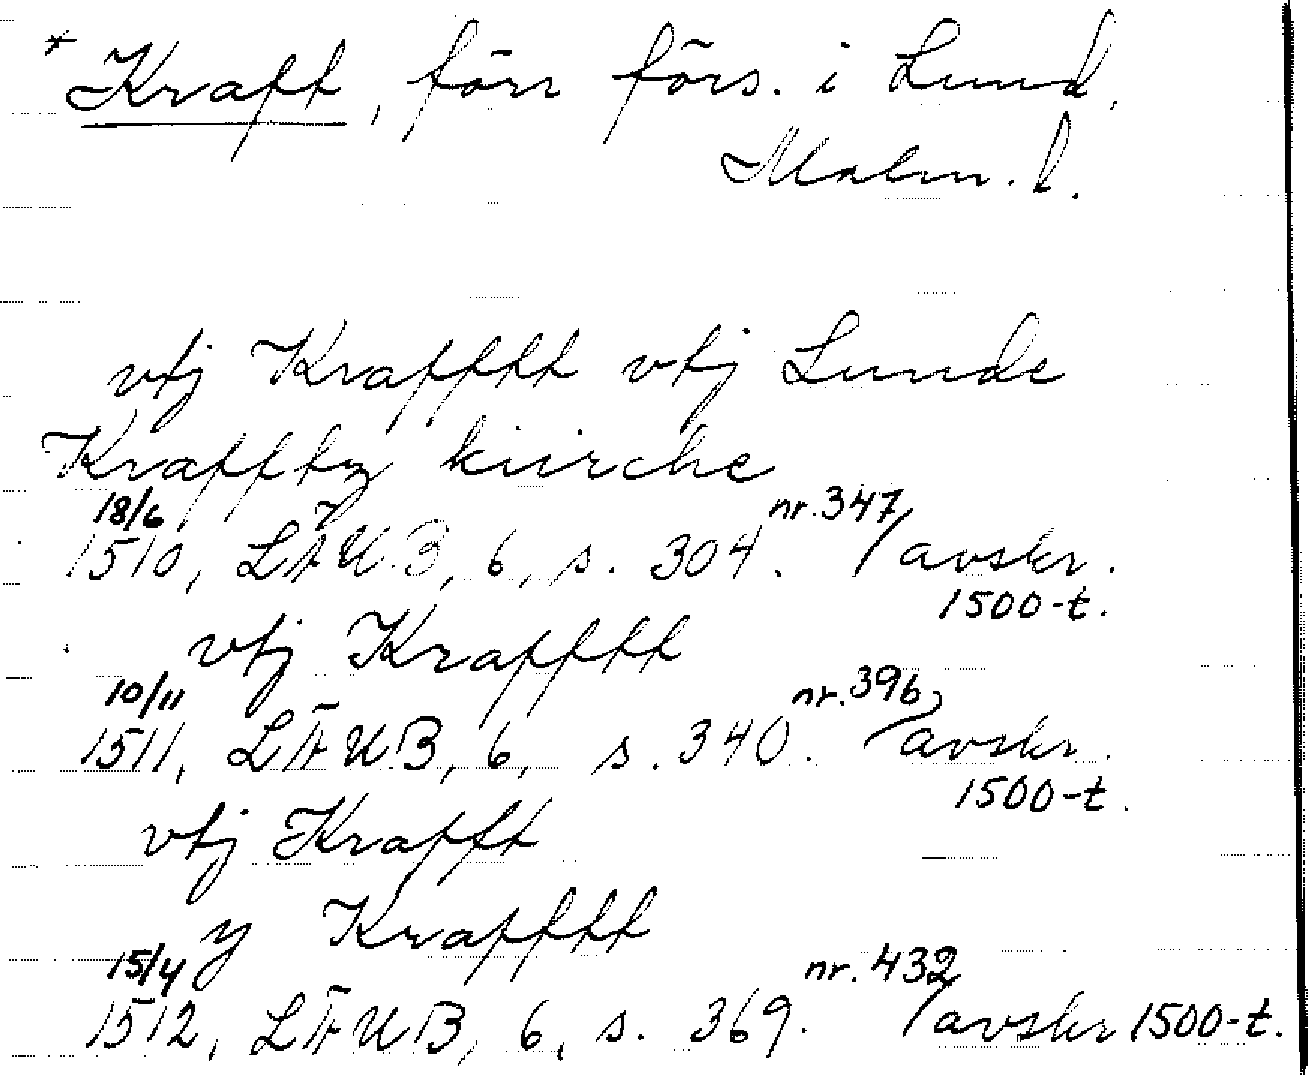 * Kraft, förr förs. i Lund,
Malm. l.
vtj Kraffttt vtj Lunde
Krafftz kiirche
18/6 nr. 347
1510, LÄUB, 6, s. 304. / avskr.
1500-t.
vtj Kraffttt
10/11 nr. 396
1511, LÄUB, 6, s. 340. / avskr.
1500-t.
vtj Krafft
y Kraffttt
15/4 nr. 432
1512, LÄUB, 6, s. 369. / avskr 1500-t.